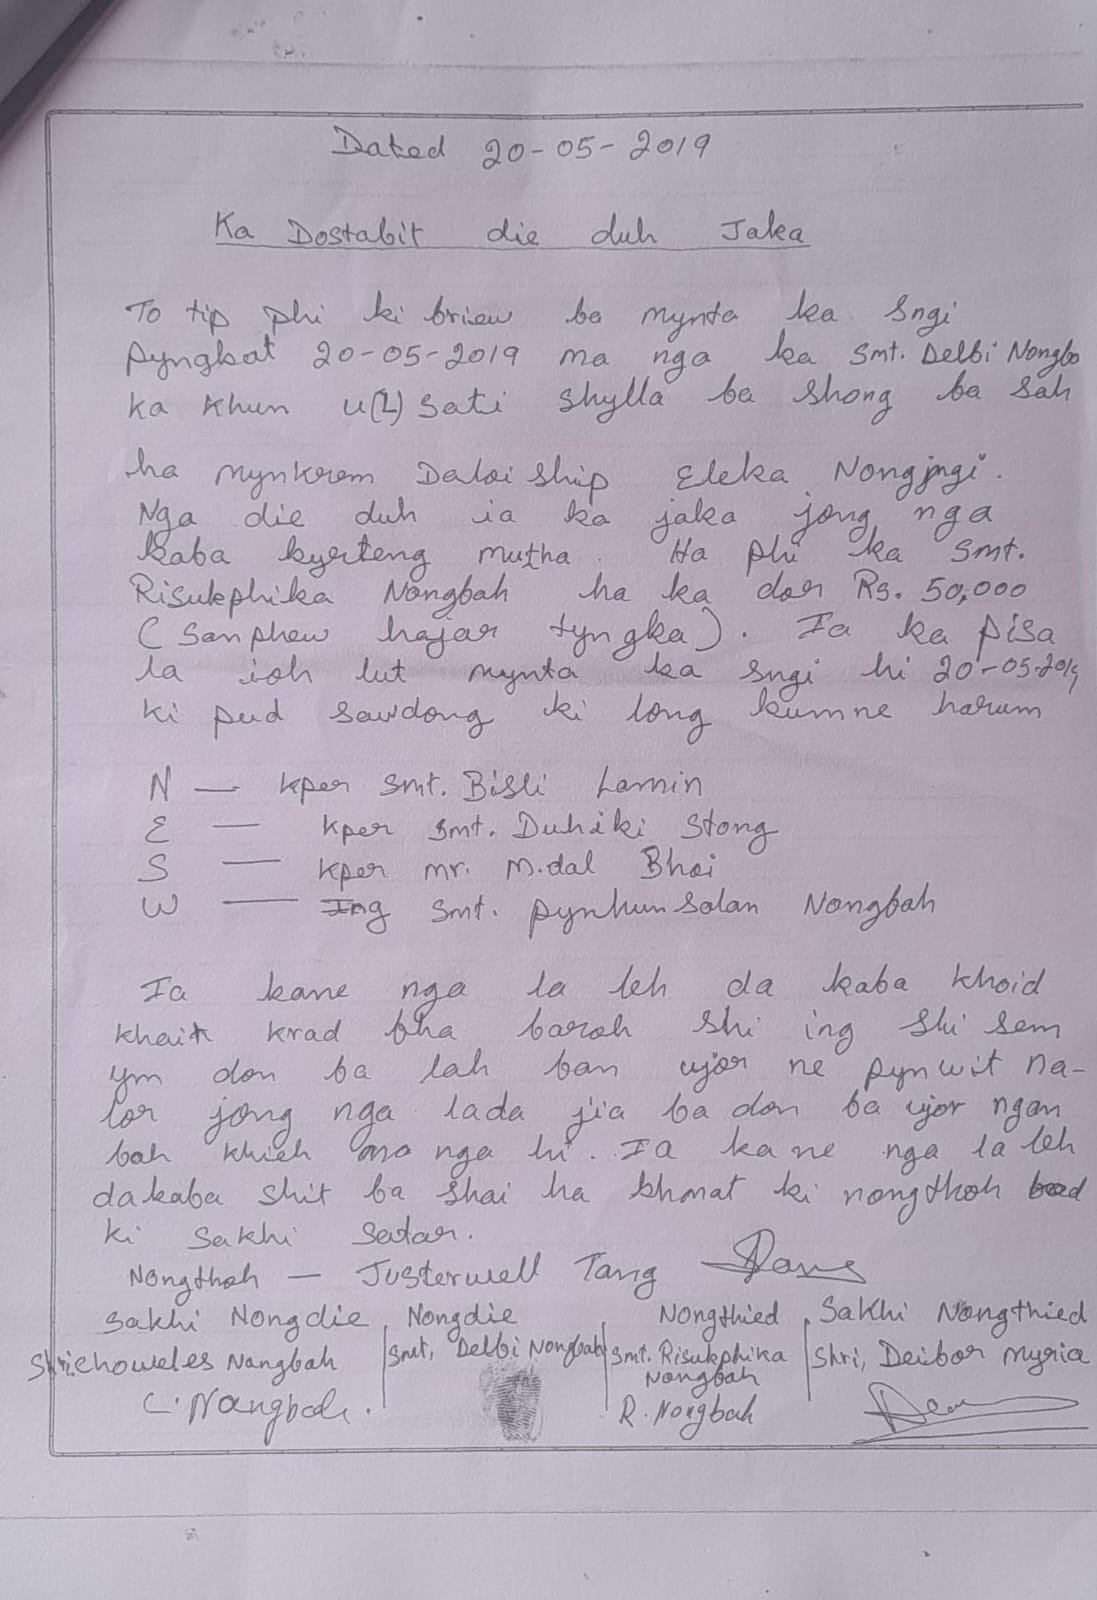 Dated 20-05-2019
Ka Dostabit die duh Jaka
To tip phi ki briew ba mynta ka Sngi
Pyngkat 20-05-2019 ma nga ka Smt. Delbi Nongba
ka Khun u(L) Sati Shylla ba Shong ba Sah
ha Mynkrem Daloi Ship Eleka Nongjngi.
Nga die duh ia ka jaka jong nga
kaba kyrteng mutha. Ha phi ka Smt.
Risukphika Nongbah ha ka dor Rs. 50,000
(Sanphew hajar tyngka). Ia ka pisa
la ioh lut mynta ka Sngi hi 20-05-2019
ki pud sawdong ki long kumne harum
N — kper Smt. Bisli Lamin
E — kper Smt. Duhiki Stong
S — kper mr. M.dal Bhoi
W — Ing Smt. Pynhunsalan Nongbah
Ia kane nga la leh da kaba khoid
khait krad bha baroh shi ing shi sem
ym don ba lah ban ujor ne pynwit na-
lor jong nga lada jia ba don ba ujor ngan
bah khieh ma nga hi. Ia kane nga la leh
dakaba shit ba shai ha khmat ki nongthoh bad
ki Sakhi Satar.
Nongthoh — Justerwell Tang
Sakhi Nongdie Nongdie Nongthied Sakhi Nongthied
Shri Choweles Nangbah Smt, Delbi Nongbah Smt. Risukphika Shri, Deibor Myria
Nongbah
C. Nangbah. R. Nongbah